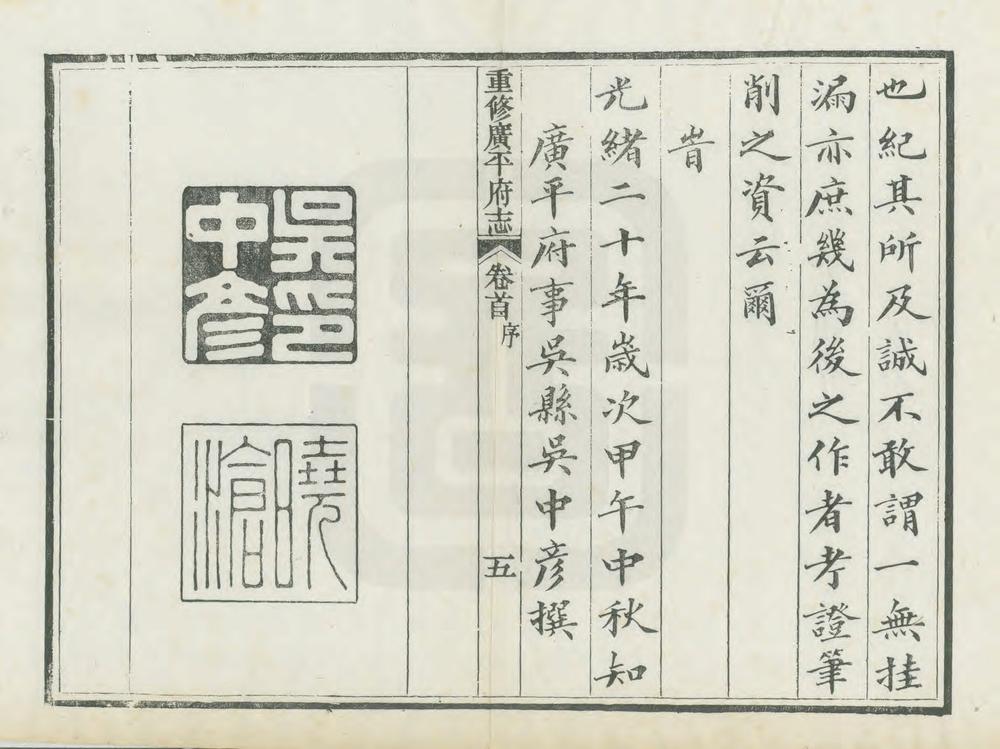 也紀其所及誠不敢謂一無挂
漏亦庶幾為後之作者考證筆
削之資云爾
旹
光緒二十年歲次甲午中秋知
廣平府事吳縣吳中彥撰
重修廣平府志 卷首 序 五
吳中彥印
曉滄